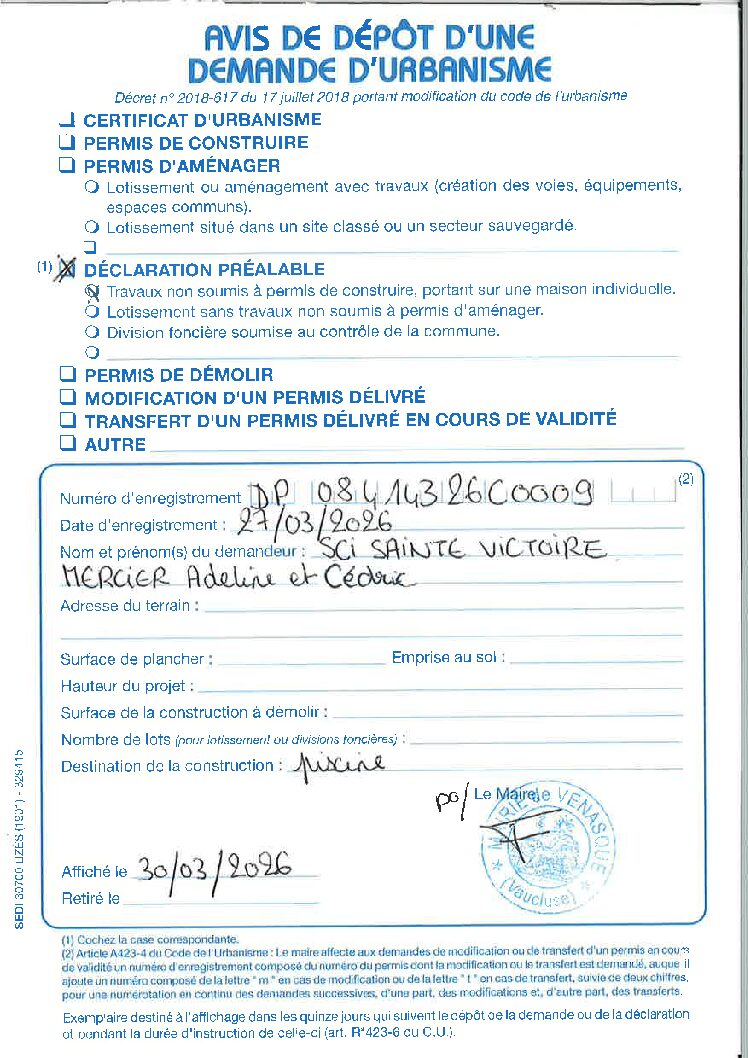 AVIS DE DÉPÔT D'UNE
DEMANDE D'URBANISME
Décret n° 2018-617 du 17 juillet 2018 portant modification du code de l'urbanisme
CERTIFICAT D'URBANISME
PERMIS DE CONSTRUIRE
PERMIS D'AMÉNAGER
Lotissement ou aménagement avec travaux (création des voies, équipements,
espaces communs).
Lotissement situé dans un site classé ou un secteur sauvegardé.
(1) DÉCLARATION PRÉALABLE
Travaux non soumis à permis de construire, portant sur une maison individuelle.
Lotissement sans travaux non soumis à permis d'aménager.
Division foncière soumise au contrôle de la commune.
PERMIS DE DÉMOLIR
MODIFICATION D'UN PERMIS DÉLIVRÉ
TRANSFERT D'UN PERMIS DÉLIVRÉ EN COURS DE VALIDITÉ
AUTRE
Numéro d'enregistrement DP 084 143 26 C0009 (2)
Date d'enregistrement : 27/03/2026
Nom et prénom(s) du demandeur : SCI SAINTE VICTOIRE
MERCIER Adeline et Cédric
Adresse du terrain :
Surface de plancher : Emprise au sol :
Hauteur du projet :
Surface de la construction à démolir :
Nombre de lots (pour lotissement ou divisions foncières) :
Destination de la construction : piscine
po/ Le Maire,
MAIRIE de VENASQUE
(Vaucluse)
Affiché le 30/03/2026
Retiré le
SEDI 30700 UZÈS (1901) - 329415
(1) Cochez la case correspondante.
(2) Article A423-4 du Code de l'Urbanisme : Le maire affecte aux demandes de modification ou de transfert d'un permis en cours
de validité un numéro d'enregistrement composé du numéro du permis dont la modification ou le transfert est demandé, auquel il
ajoute un numéro composé de la lettre "m" en cas de modification ou de la lettre "t" en cas de transfert, suivie de deux chiffres,
pour une numérotation en continu des demandes successives, d'une part, des modifications et, d'autre part, des transferts.
Exemplaire destiné à l'affichage dans les quinze jours qui suivent le dépôt de la demande ou de la déclaration
et pendant la durée d'instruction de celle-ci (art. R*423-6 du C.U.).